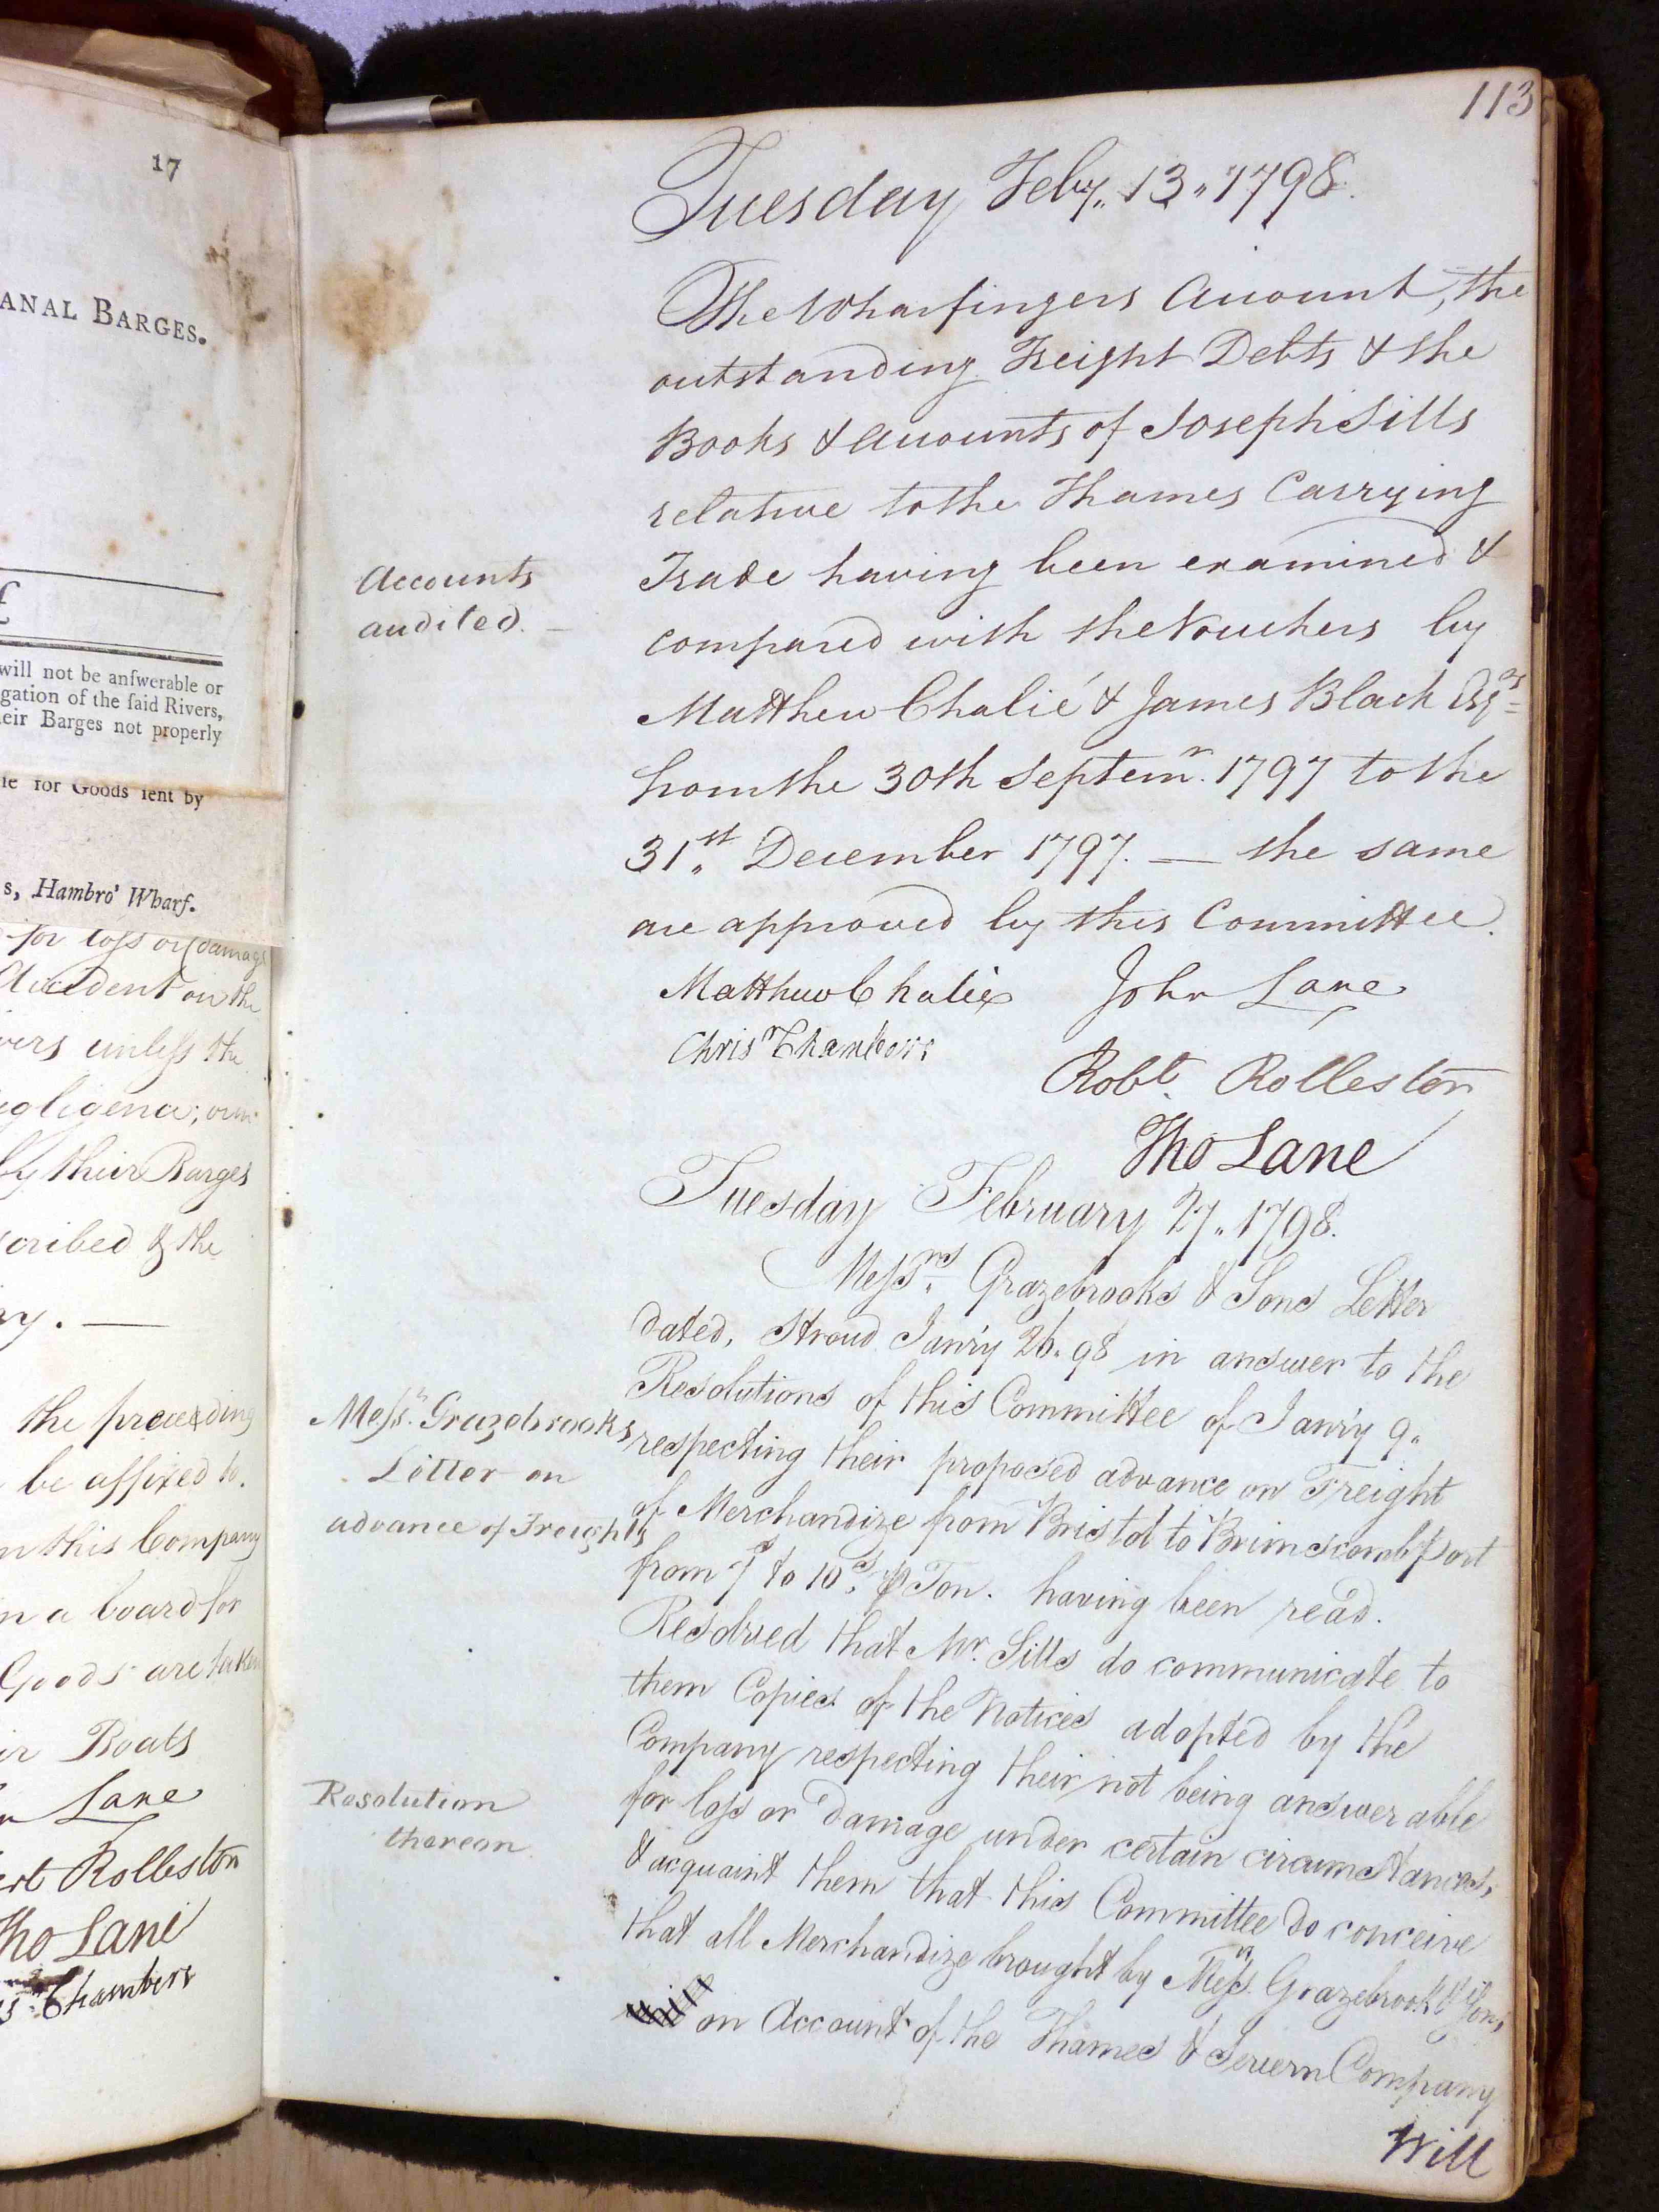 17
ANAL BARGES.
£
will not be anſwerable or
gation of the ſaid Rivers,
eir Barges not properly
le for Goods ſent by
s, Hambro' Wharf.
for loſs or damage
Accident on the
vers unleſs the
egligence, or
by their Barges
scribed & the
ry. —
the preceeding
be affixed to
n this Company
n a board for
Goods are taken
ir Boats
n Lane
ert Rolleston
Tho Lane
Chambers
113
Tuesday Feby. 13, 1798.
The Wharfingers Account, the
outstanding Freight Debts & the
Books & Accounts of Joseph Sills
relative to the Thames Carrying
Accounts
audited. —
Trade having been examined &
compared with the Vouchers by
Matthew Chalié & James Black Esqrs
from the 30th Septemr. 1797 to the
31st. December 1797. — the same
are approved by this Committee.
Matthew Chalié John Lane
Chrisr Chambers
Robt. Rolleston
Tho Lane
Tuesday February 27. 1798.
Meſsrs. Grazebrooks & Sons Letter
dated, Stroud Janry 26. 98 in answer to the
Resolutions of this Committee of Janry 9.
Meſsrs. Grazebrooks
Letter on
advance of Freights
respecting their proposed advance on Freight
of Merchandize from Bristol to Brimscomb Port
from 7s to 10s. ⅌ Ton. having been read.
Resolved that Mr. Sills do communicate to
them Copies of the Notices adopted by the
Company respecting their not being answerable
Resolution
thereon
for loſs or damage under certain circumstances,
& acquaint them that this Committee do conceive
that all Merchandize brought by Meſsrs. Grazebrook & Sons
will on Account of the Thames & Severn Company
Will